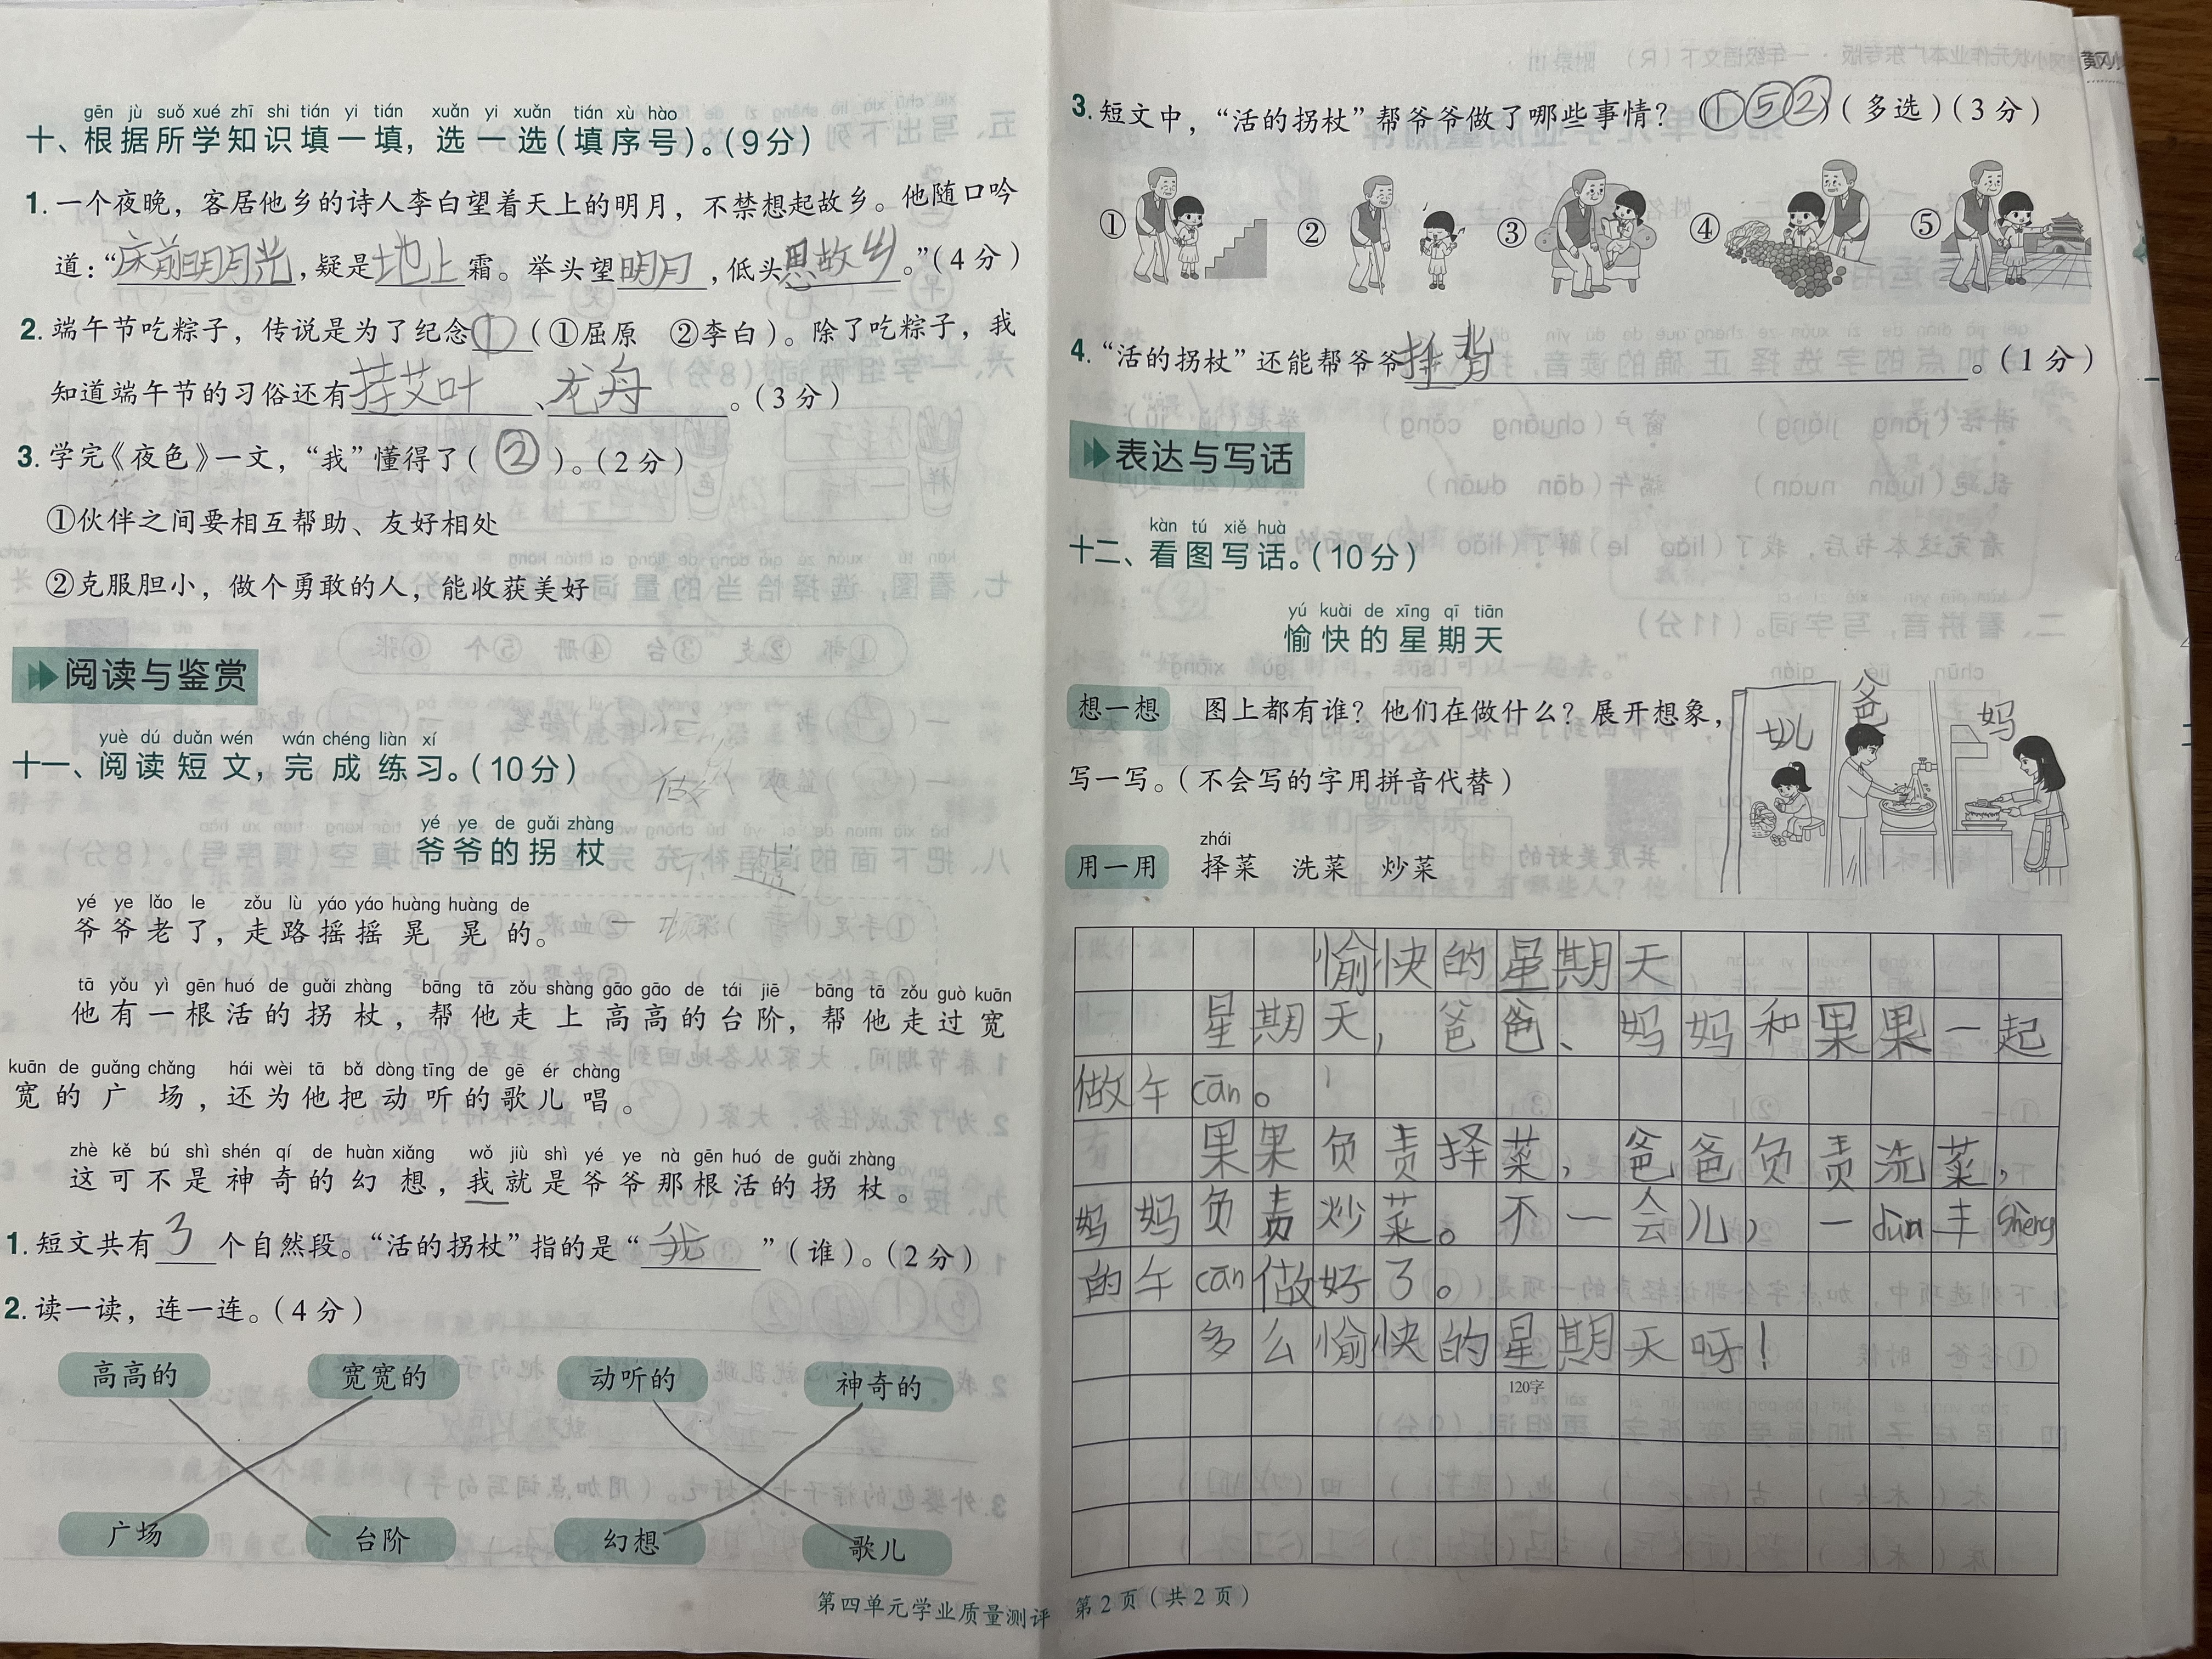 gēn jù suǒ xué zhī shi tián yi tián xuǎn yi xuǎn tián xù hào
十、根据所学知识填一填，选一选（填序号）。（9分）
1. 一个夜晚，客居他乡的诗人李白望着天上的明月，不禁想起故乡。他随口吟
道：“床前明月光，疑是地上霜。举头望明月，低头思故乡。”（4分）
2. 端午节吃粽子，传说是为了纪念①（①屈原 ②李白）。除了吃粽子，我
知道端午节的习俗还有挂艾叶、龙舟。（3分）
3. 学完《夜色》一文，“我”懂得了（②）。（2分）
①伙伴之间要相互帮助、友好相处
②克服胆小，做个勇敢的人，能收获美好
阅读与鉴赏
yuè dú duǎn wén wán chéng liàn xí
十一、阅读短文，完成练习。（10分）
yé ye de guǎi zhàng
爷爷的拐杖
yé ye lǎo le zǒu lù yáo yáo huàng huàng de
爷爷老了，走路摇摇晃晃的。
tā yǒu yì gēn huó de guǎi zhàng bāng tā zǒu shàng gāo gāo de tái jiē bāng tā zǒu guò kuān
他有一根活的拐杖，帮他走上高高的台阶，帮他走过宽
kuān de guǎng chǎng hái wèi tā bǎ dòng tīng de gē ér chàng
宽的广场，还为他把动听的歌儿唱。
zhè kě bú shì shén qí de huàn xiǎng wǒ jiù shì yé ye nà gēn huó de guǎi zhàng
这可不是神奇的幻想，我就是爷爷那根活的拐杖。
1. 短文共有3个自然段。“活的拐杖”指的是“我”（谁）。（2分）
2. 读一读，连一连。（4分）
高高的 宽宽的 动听的 神奇的
广场 台阶 幻想 歌儿
3. 短文中，“活的拐杖”帮爷爷做了哪些事情？（①⑤②）（多选）（3分）
① ② ③ ④ ⑤
4. “活的拐杖”还能帮爷爷捶背。（1分）
表达与写话
kàn tú xiě huà
十二、看图写话。（10分）
yú kuài de xīng qī tiān
愉快的星期天
想一想 图上都有谁？他们在做什么？展开想象，
写一写。（不会写的字用拼音代替）
爸 妈
zhái
用一用 择菜 洗菜 炒菜
愉快的星期天
星期天，爸爸、妈妈和果果一起
做午cān。
果果负责择菜，爸爸负责洗菜，
妈妈负责炒菜。不一会儿，一dùn丰shèng
的午cān做好了。
多么愉快的星期天呀！
120字
第四单元学业质量测评 第2页（共2页）